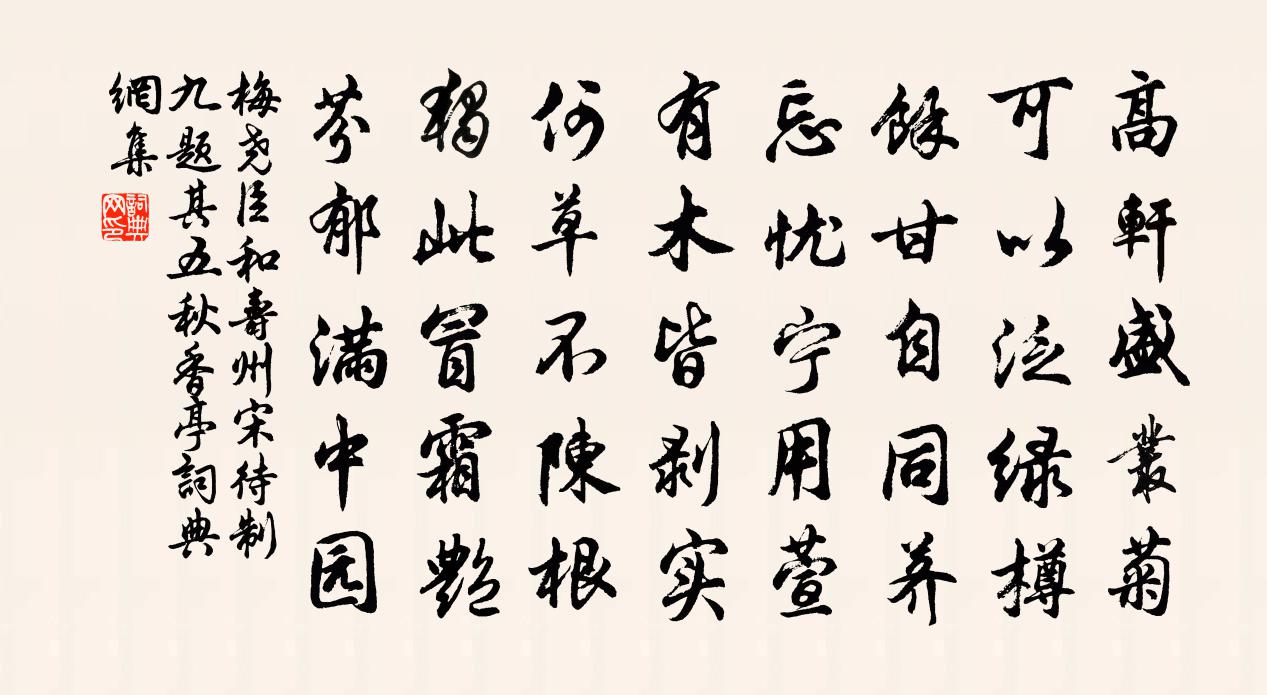 高軒盛叢菊
可以泛緑樽
餘甘自同荞
忘忧宁用萱
有木皆剥实
何草不陳根
獨此冒霜艷
芬郁滿中园
梅尧臣和壽州宋待制
九题其五秋香亭詞典
網集
詞典
网印